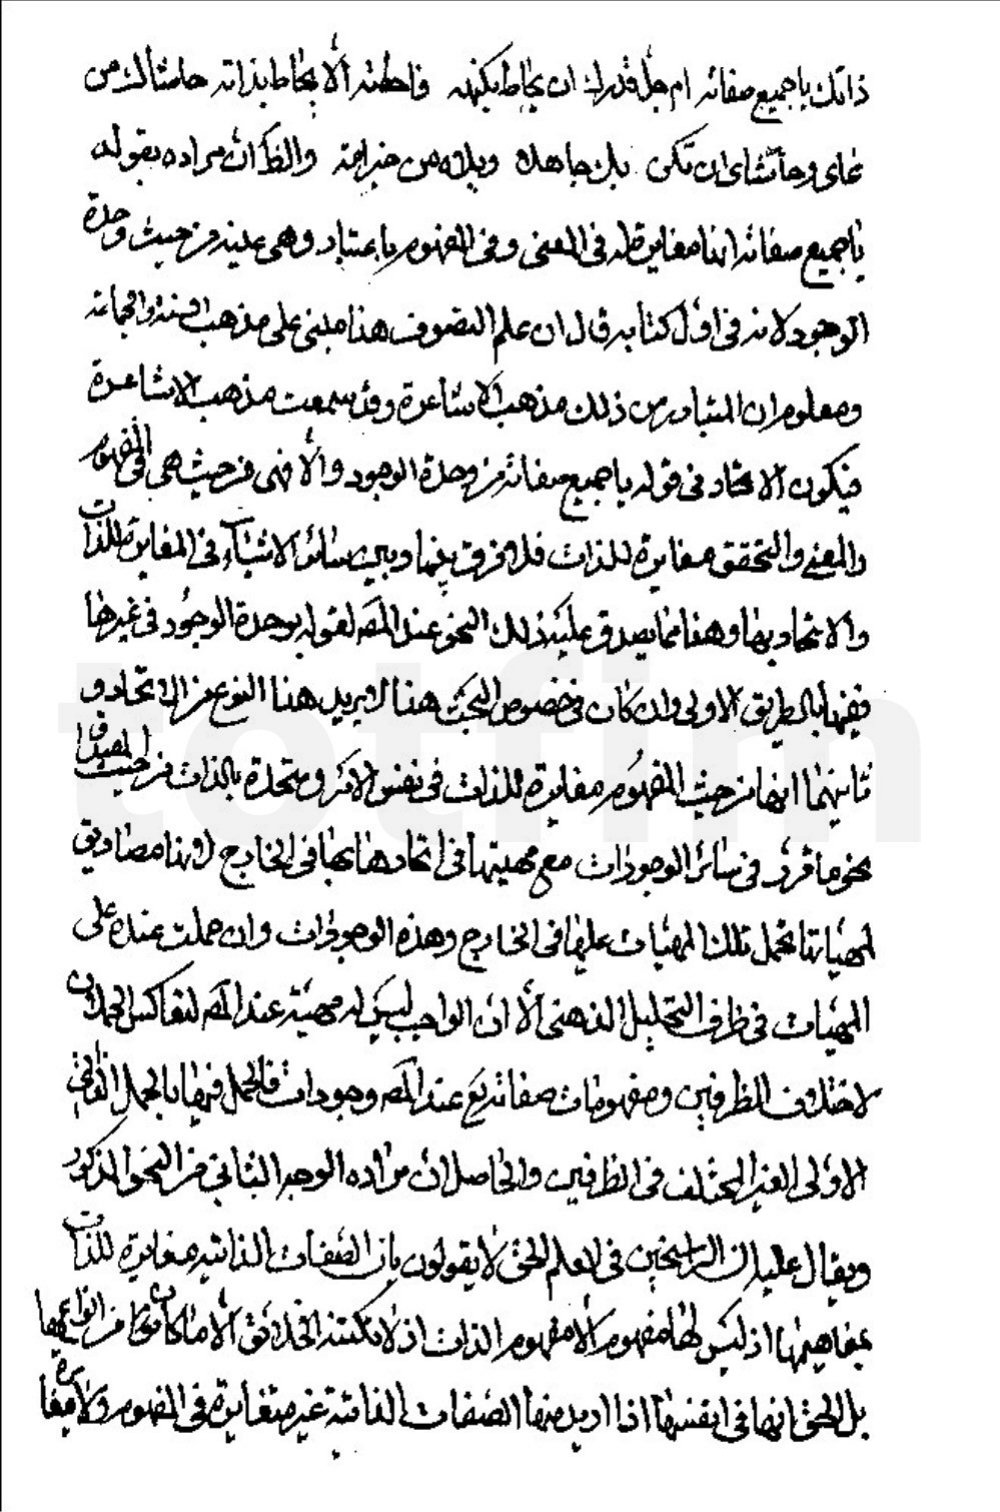 ذاتك يا جميع صفاته ام جل قدرك ان يحاط بكنهه فاحطته الا يحاط بذاته حاشاك من
غاى وحاشاى ان تكن بك جاهلا ويلاه من حيراته والظ ان مراده بقوله
يا جميع صفاته انها مغايرة له فى المعنى وفى المفهوم باعتبار وهى عينه من حيث وحدة
الوجود لانه فى اول كتابه قال ان علم التصوف هذا مبنى على مذهب السنة والجماعة
ومعلوم ان المتبادر من ذلك مذهب الاشاعرة وقد سمعت مذهب الاشاعرة
فيكون الاتحاد فى قوله يا جميع صفاته من وحدة الوجود والا فهى من حيث هى فى المفهوم
والمعنى والتحقق مغايرة للذات فلا فرق بينها وبين سائر الاشياء فى المغايرة للذات
والاتحاد بها وهذا مما يصدق عليه ذلك النحو عند المص لقوله بوحدة الوجود فى غيرها
ففيها بالطريق الاولى وان كان فى خصوص البحث هنا لا يريد هذا النوع من الاتحاد و
ثانيهما انها من حيث المفهوم مغايرة للذات فى نفس الامر ومتحدة بالذات من حيث المصداق
نحو ما قرر فى سائر الوجودات مع مهيتها فى اتحادها بها فى الخارج لانها مصاديق
لمهياتها تحمل تلك المهيات عليها فى الخارج وهذه الوجودات وان حملت عنده على
المهيات فى ظرف التحليل الذهنى الا ان الواجب ليس له مهية عند المص لتعاكس الحملان
لاختلاف الظرفين ومفهومات صفاته تع عند المص وجودات فالحمل فيها بالحمل الذاتى
الاولى الغير المختلف فى الظرفين والحاصل ان مراده الوجه الثانى من النحو المذكور
ويقال عليه ان الراسخين فى العلم الحق لا يقولون بان الصفات الذاتية مغايرة للذات
بمفاهيمها اذ ليس لها مفهوم الا مفهوم الذات اذ لا تكتنه الخلائق الا ما كان من انواعها
بل الحق انها فى انفسها اذا اريد منها الصفات الذاتية غير متغايرة فى المفهوم ولا مغايرة